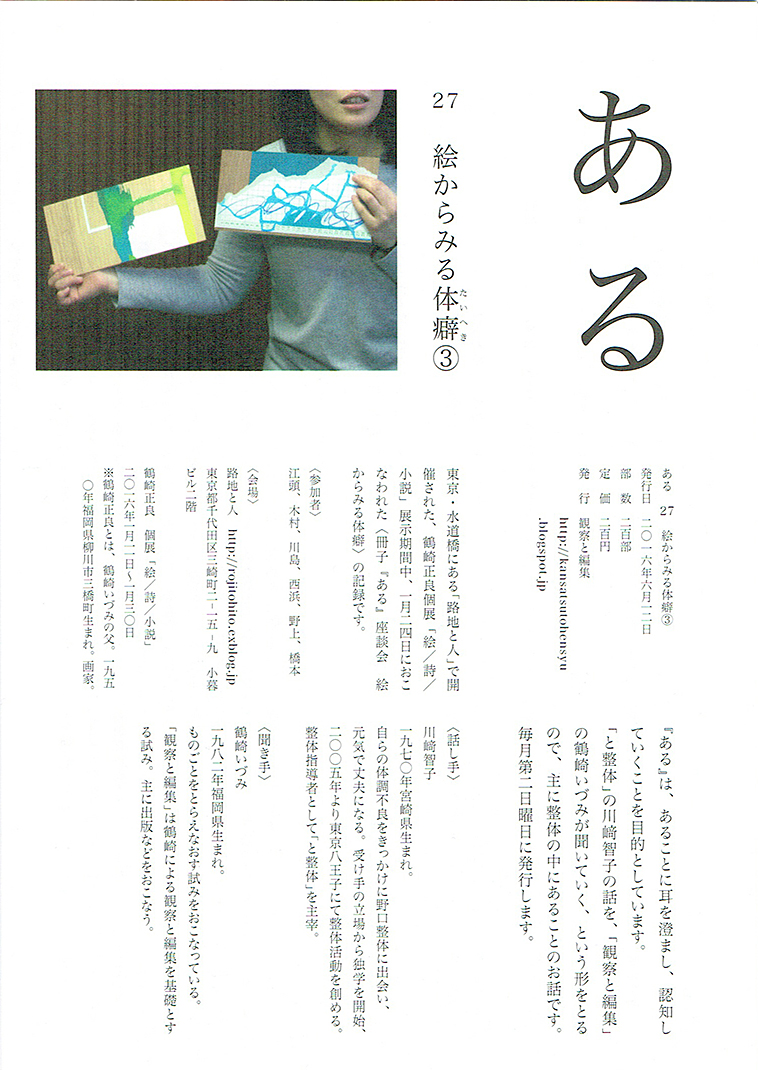 ある
27 絵からみる体癖③
たいへき
ある 27 絵からみる体癖③
発行日 二〇一六年六月一二日
部 数 二百部
定 価 二百円
発 行 観察と編集
http://kansatsutohensyu
.blogspot.jp
東京・水道橋にある「路地と人」で開
催された、鶴崎正良個展「絵／詩／
小説」展示期間中、一月二四日におこ
なわれた〈冊子『ある』座談会 絵
からみる体癖〉の記録です。
〈参加者〉
江頭、木村、川島、西浜、野上、橋本
〈会場〉
路地と人 http://rojitohito.exblog.jp
東京都千代田区三崎町二-一五-九 小暮
ビル二階
鶴崎正良 個展「絵／詩／小説」
二〇一六年一月一一日～一月三〇日
※鶴崎正良とは、鶴崎いづみの父。一九五
〇年福岡県柳川市三橋町生まれ。画家。
『ある』は、あることに耳を澄まし、認知し
ていくことを目的としています。
「と整体」の川﨑智子の話を、「観察と編集」
の鶴崎いづみが聞いていく、という形をとる
ので、主に整体の中にあることのお話です。
毎月第二日曜日に発行します。
〈話し手〉
川﨑智子
一九七〇年宮崎県生まれ。
自らの体調不良をきっかけに野口整体に出会い、
元気で丈夫になる。受け手の立場から独学を開始、
二〇〇五年より東京八王子にて整体活動を創める。
整体指導者として「と整体」を主宰。
〈聞き手〉
鶴崎いづみ
一九八二年福岡県生まれ。
ものごとをとらえなおす試みをおこなっている。
「観察と編集」は鶴崎による観察と編集を基礎とす
る試み。主に出版などをおこなう。